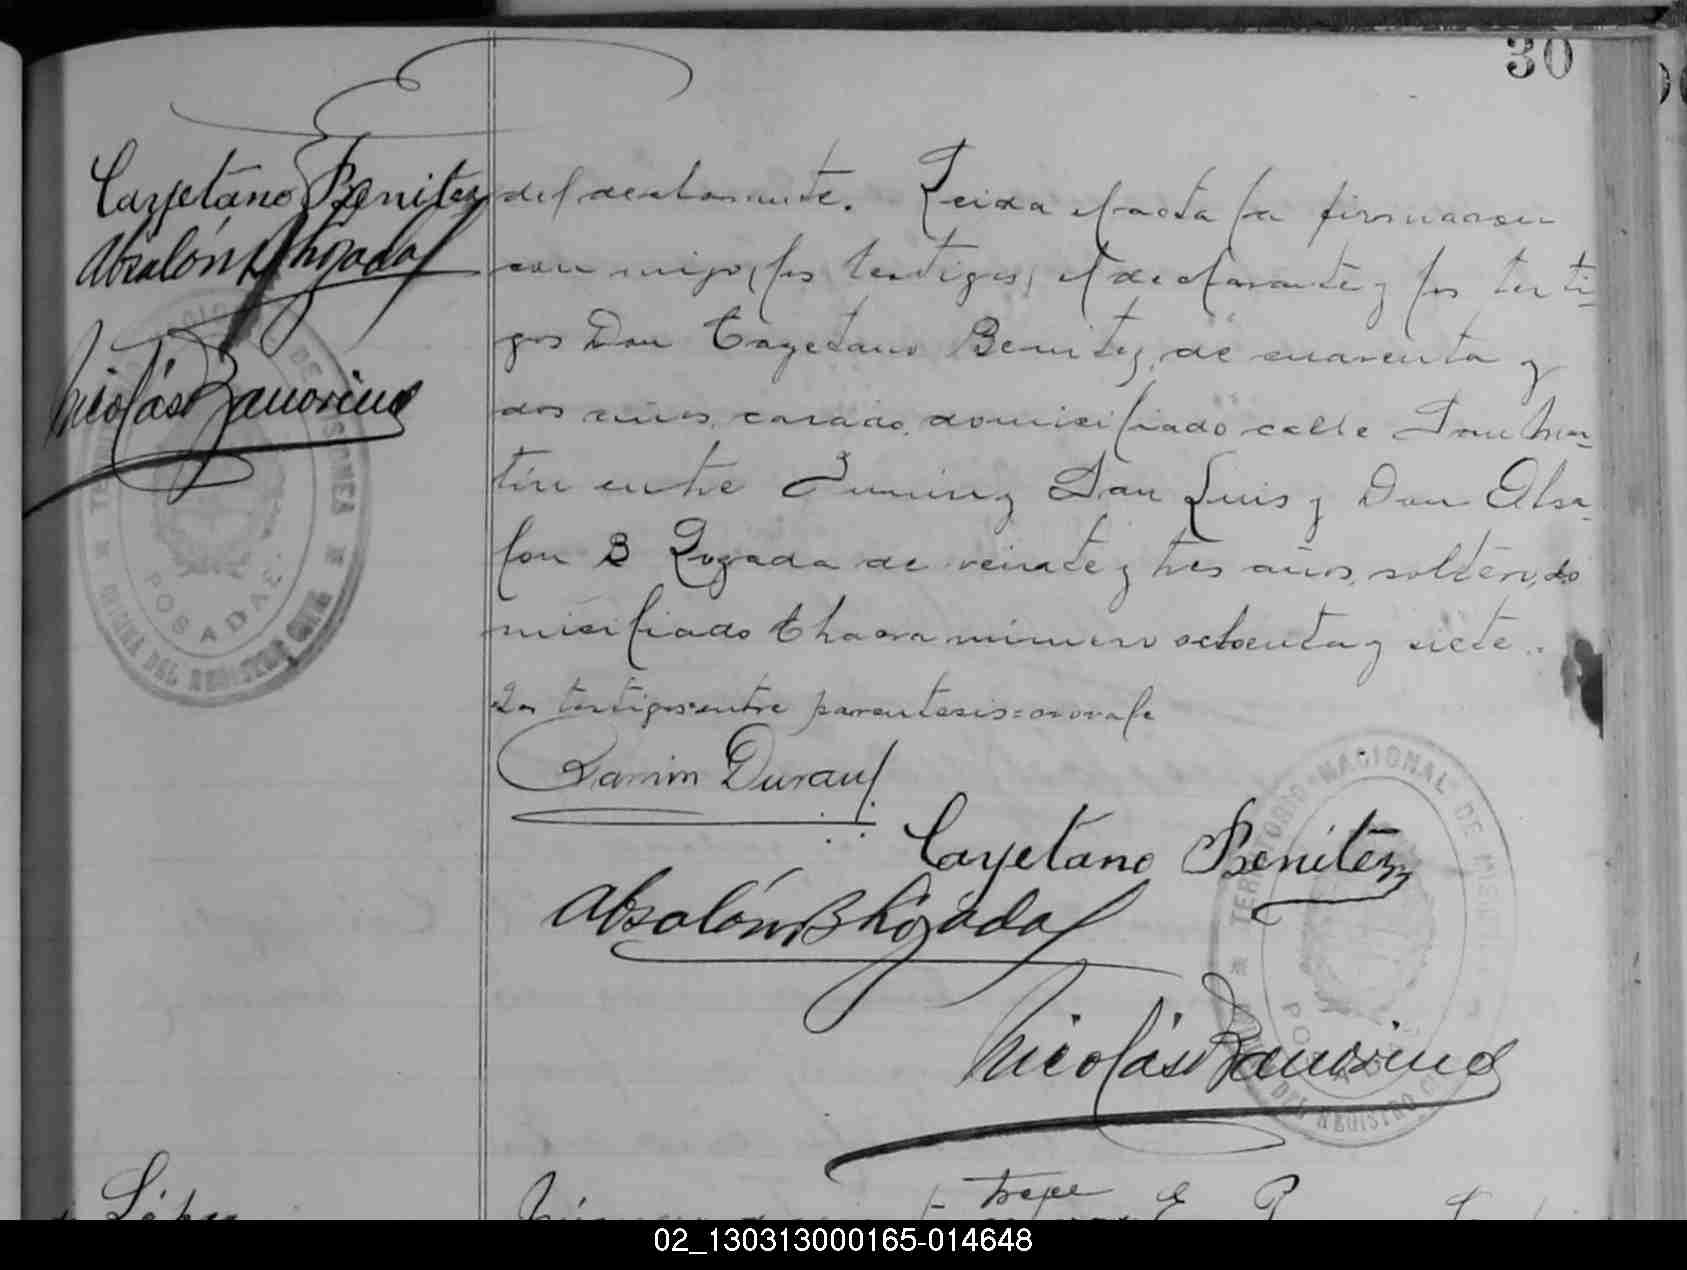 30
Cayetano Benitez
Absalón B Lozada
Nicolás Zamorino
del declarante. Leida el acta la firmaron
con migo, (los testigos) el declarante y los testi-
gos Don Cayetano Benitez, de cuarenta y
dos años, casado, domiciliado calle San Mar-
tín entre Junin y San Luis y Don Absa-
lon B Lozada de veinte y tres años, soltero, do
miciliado Chacra número ochenta y siete..
Los testigos entre parentesis = no vale
Ramon Duran
Cayetano Benitez
Absalón B Lozada
Nicolás Zamorino
TERRITORIO NACIONAL DE MISIONES
OFICINA DEL REGISTRO CIVIL
POSADAS
TERRITORIO NACIONAL DE MISIONES
OFICINA DEL REGISTRO CIVIL
POSADAS
López
trece
Número
02_130313000165-014648